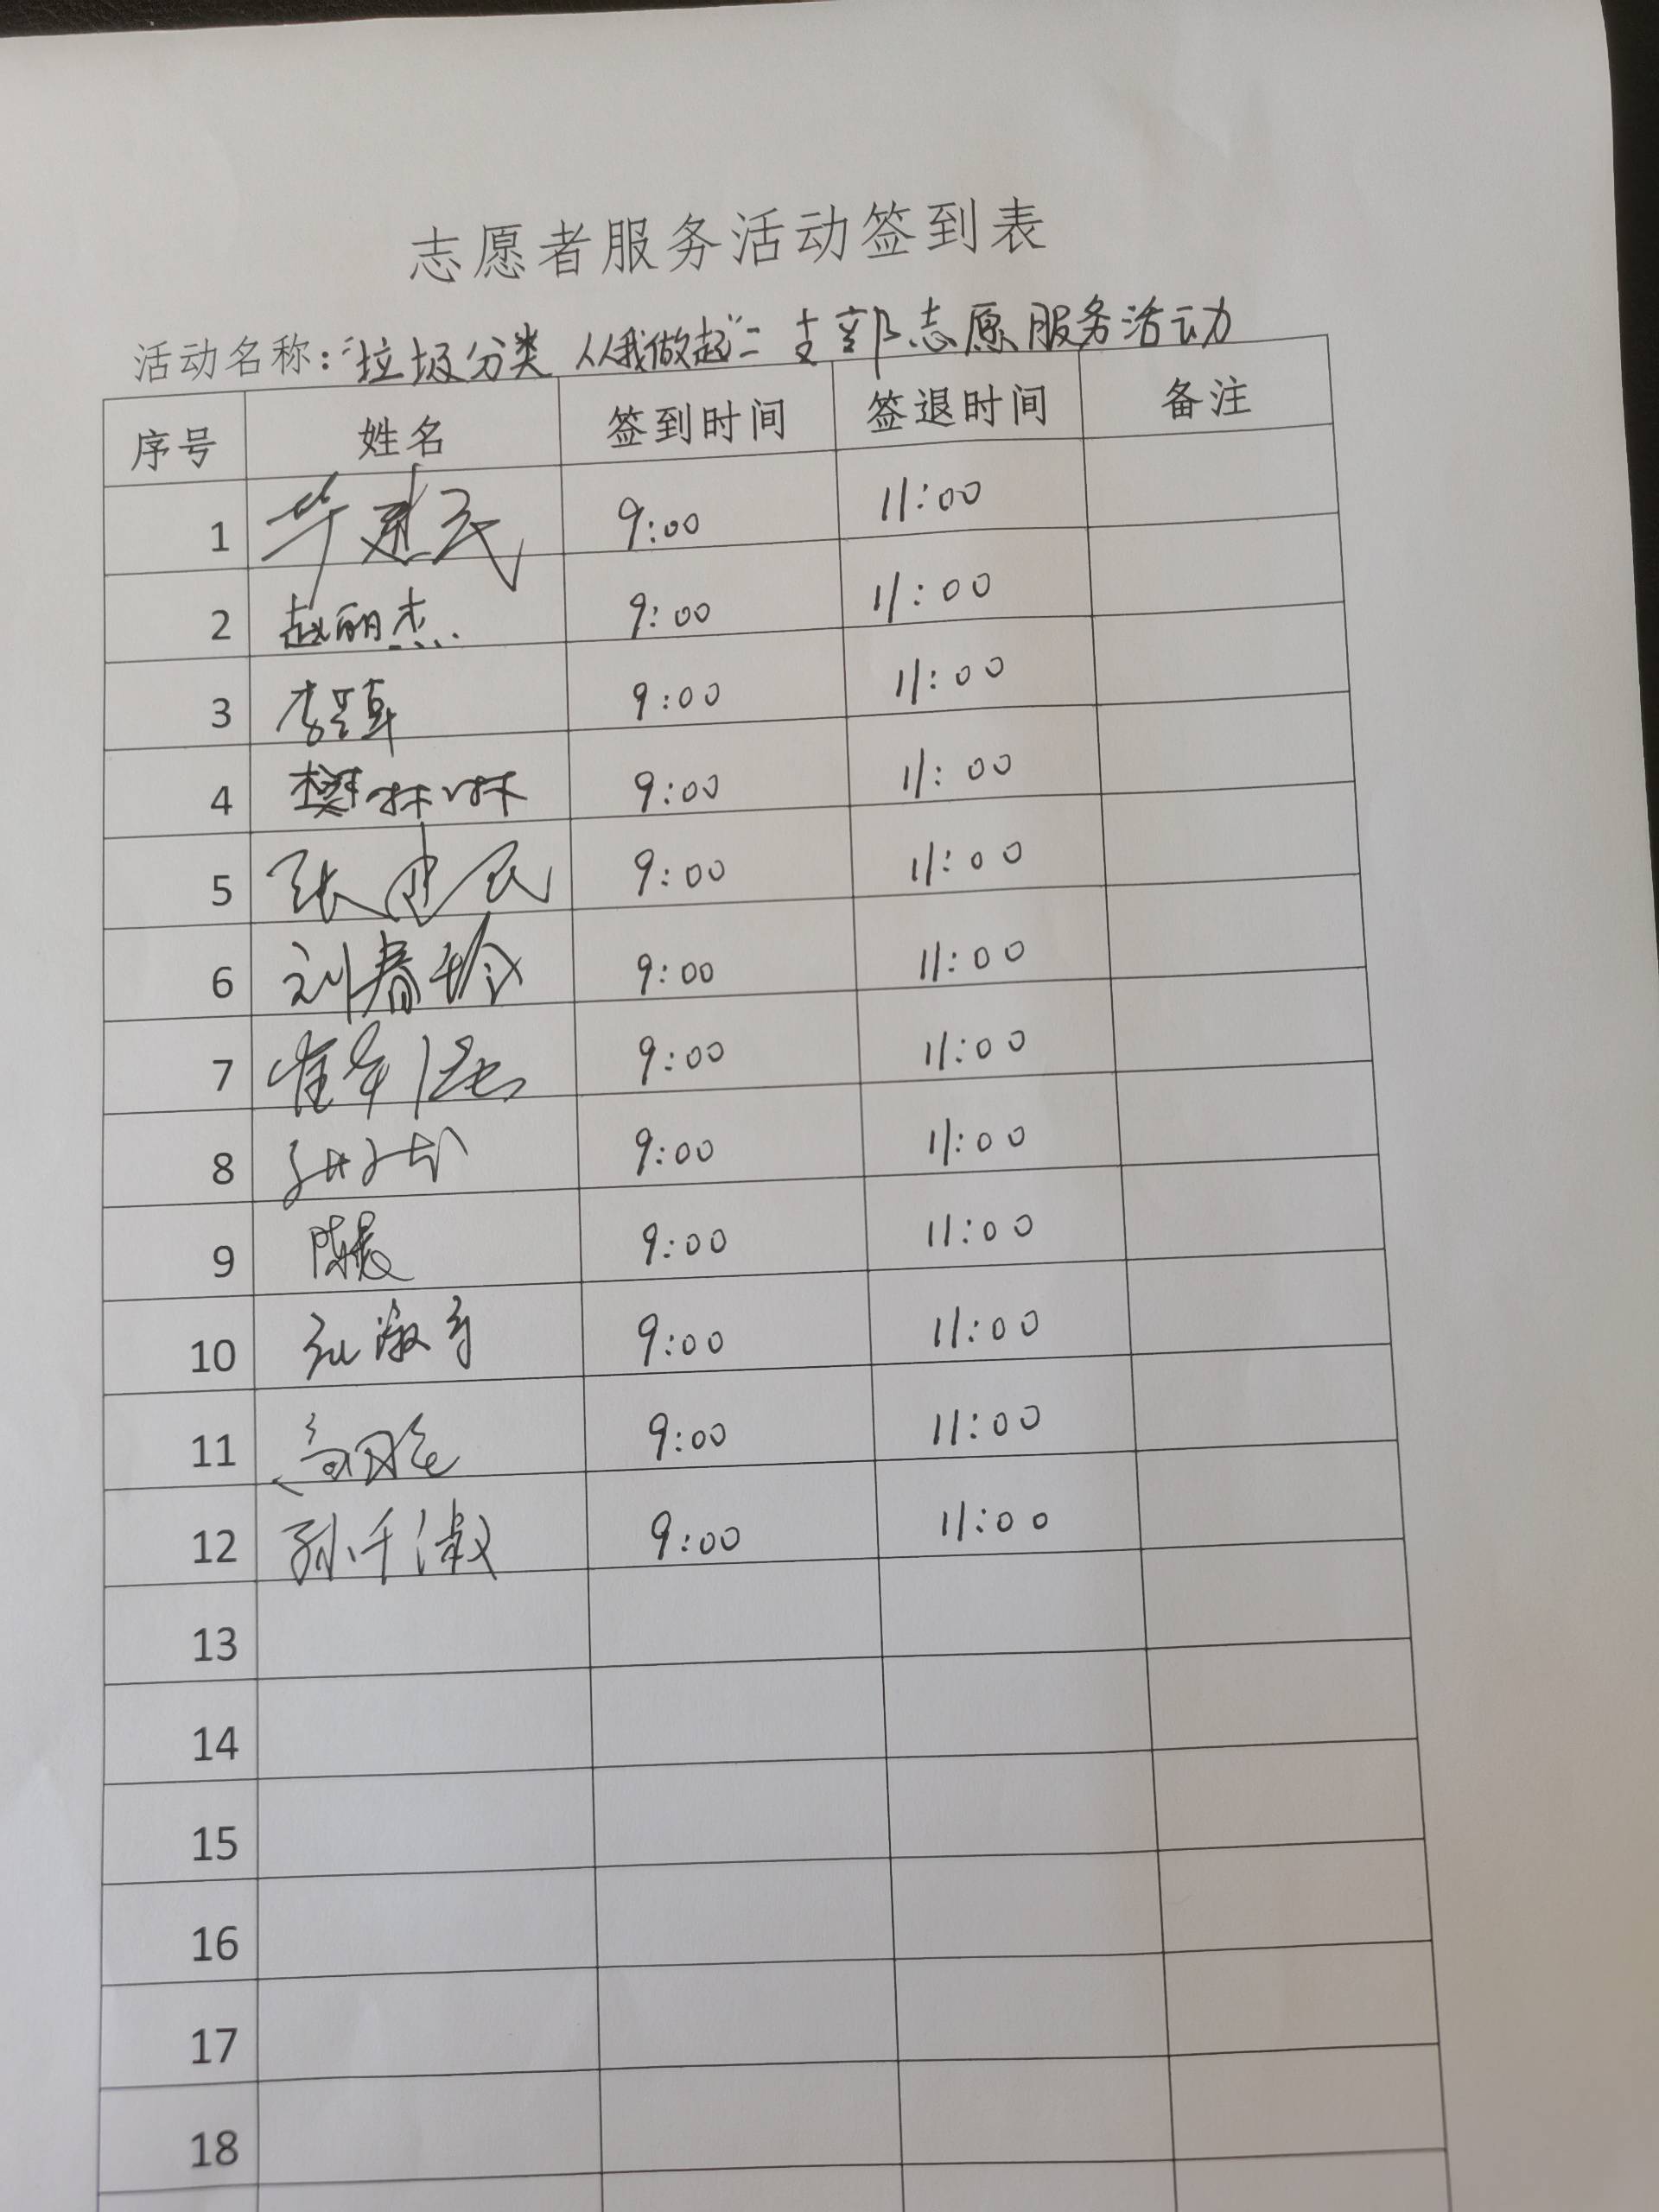 志愿者服务活动签到表
活动名称:“垃圾分类 从我做起”二支部志愿服务活动
序号 姓名 签到时间 签退时间 备注
1 华建民 9:00 11:00
2 赵丽杰 9:00 11:00
3 李 9:00 11:00
4 樊林林 9:00 11:00
5 张建民 9:00 11:00
6 刘春玲 9:00 11:00
7 崔 9:00 11:00
8 9:00 11:00
9 陈晨 9:00 11:00
10 9:00 11:00
11 高 9:00 11:00
12 孙千淑 9:00 11:00
13
14
15
16
17
18